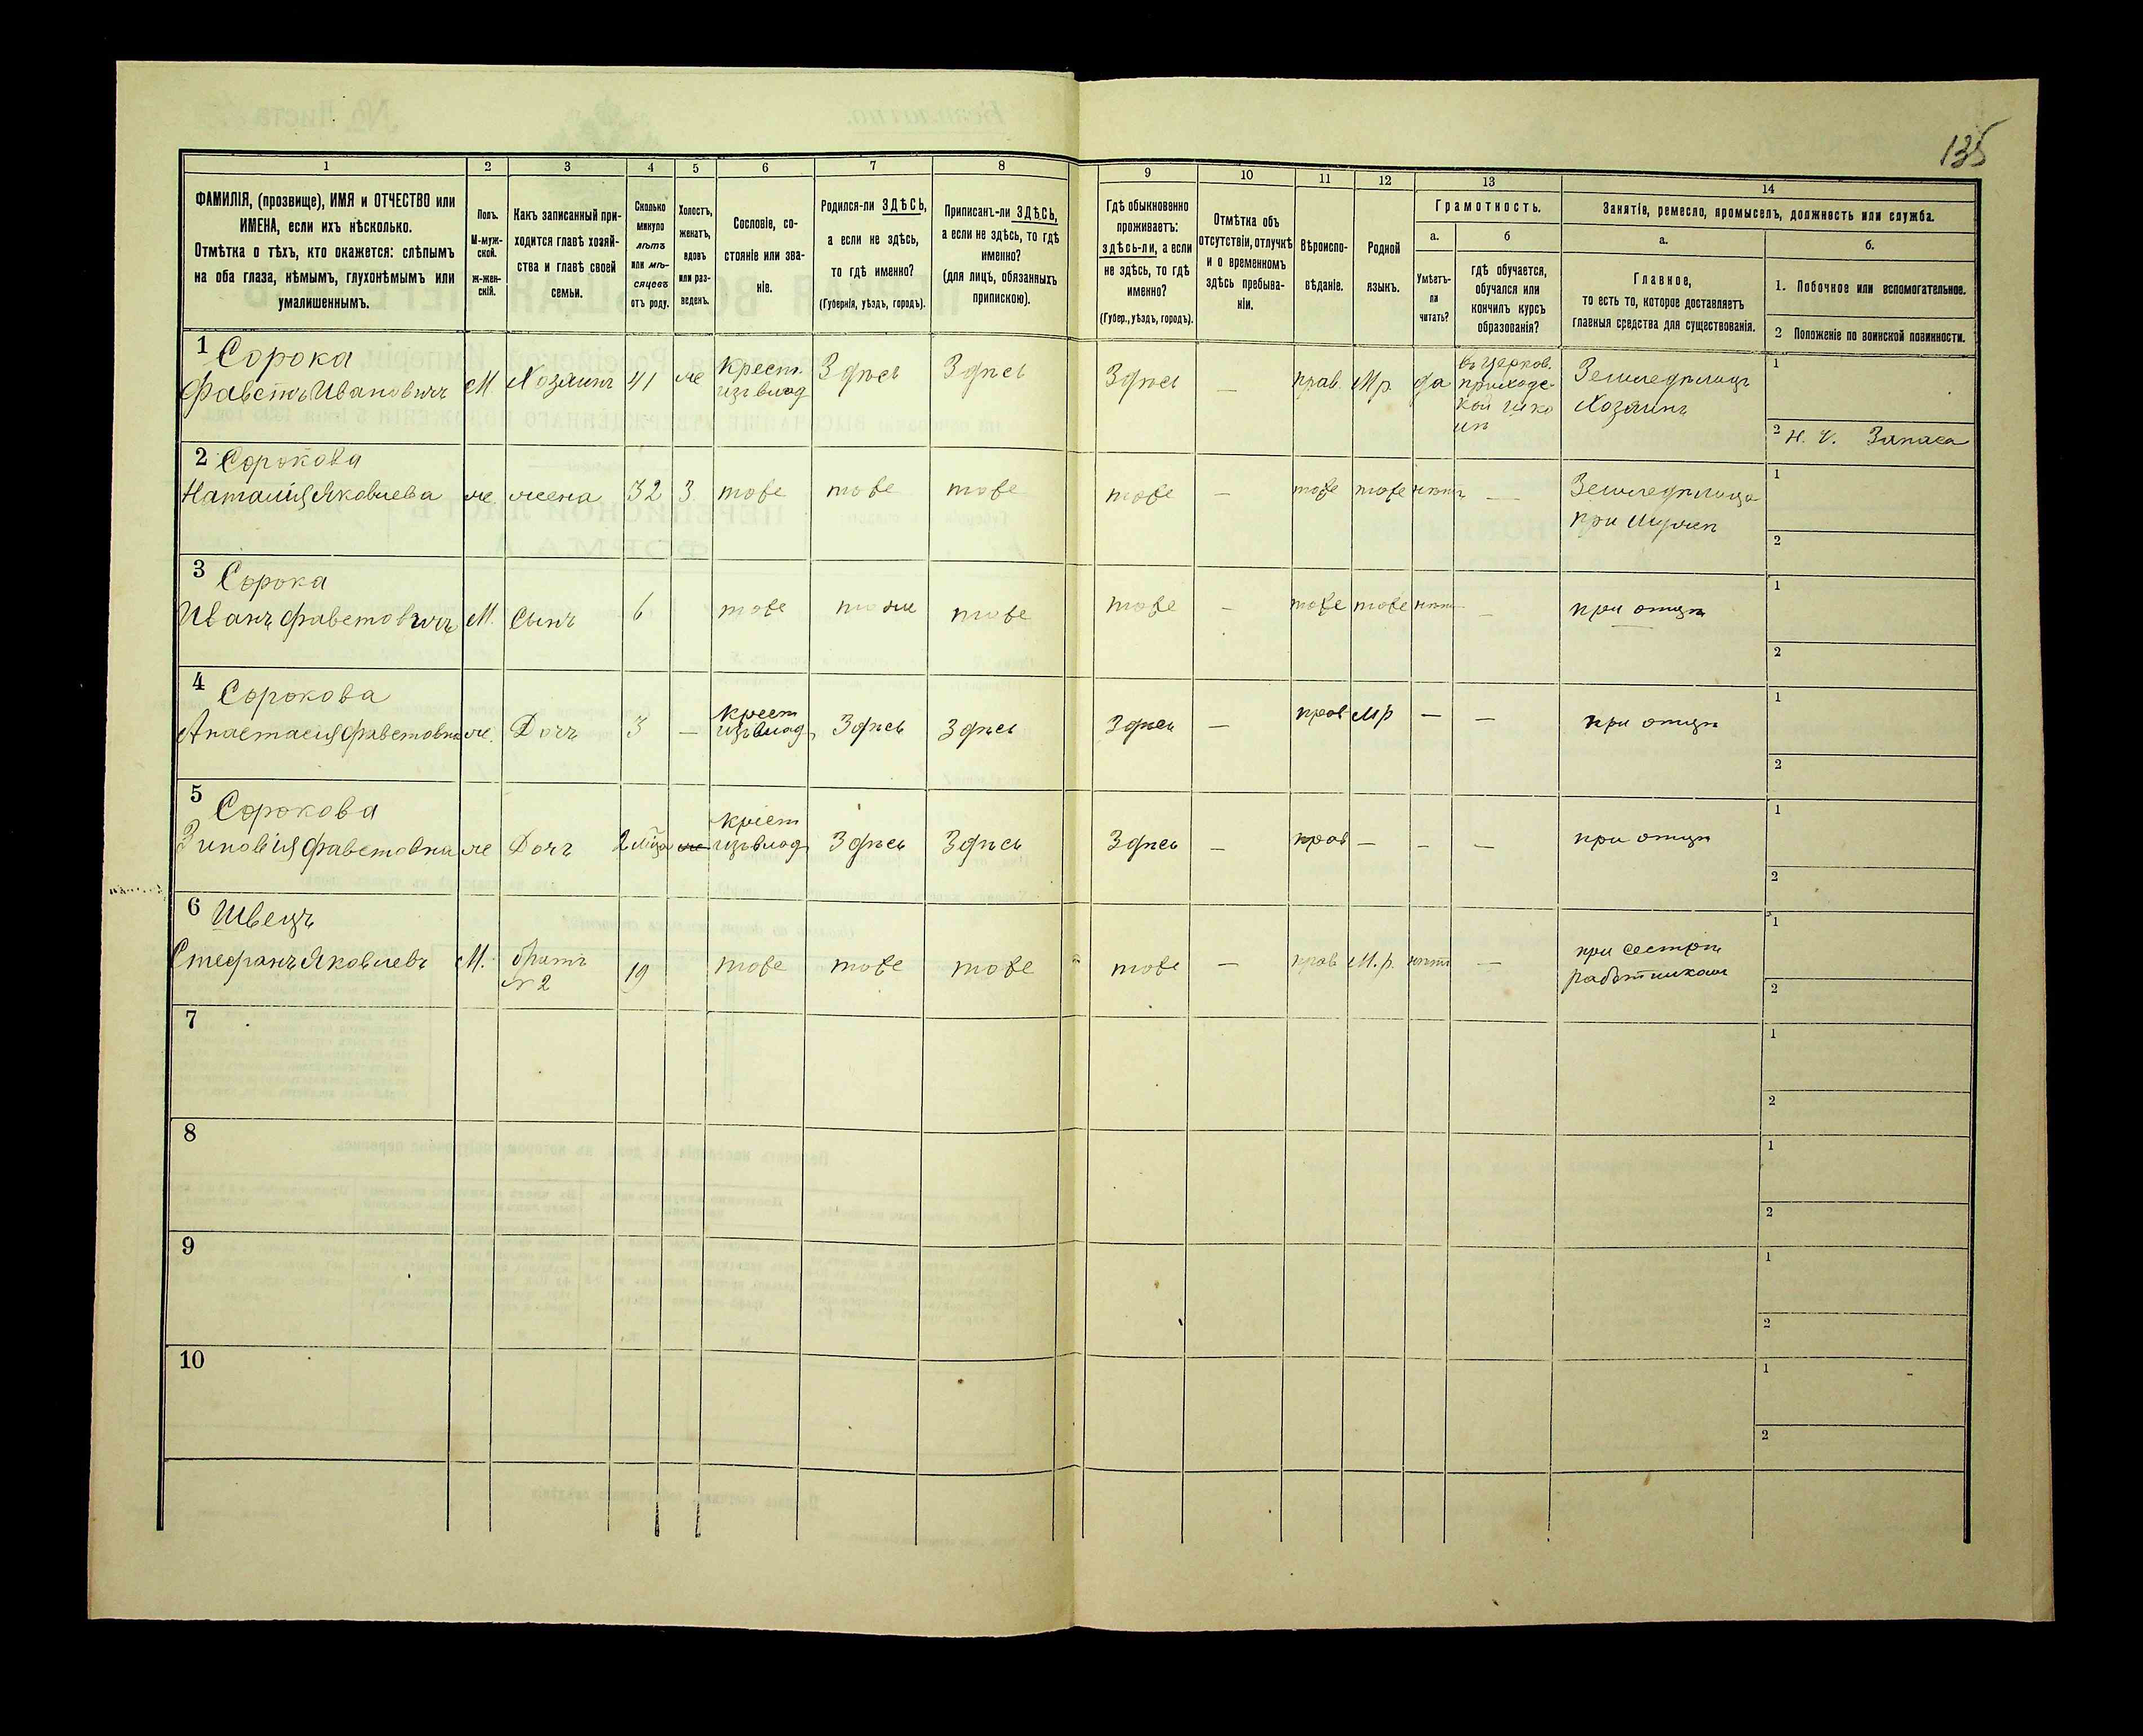 135
1 2 3 4 5 6 7 8 9 10 11 12 13 14
ФАМИЛІЯ, (прозвище), ИМЯ и ОТЧЕСТВО или
ИМЕНА, если ихъ нѣсколько.
Отмѣтка о тѣхъ, кто окажется: слѣпымъ
на оба глаза, нѣмымъ, глухонѣмымъ или
умалишеннымъ.
Полъ.
М-муж-
ской.
ж-жен-
скій.
Какъ записанный при-
ходится главѣ хозяй-
ства и главѣ своей
семьи.
Сколько
минуло
лѣтъ
или мѣ-
сяцевъ
отъ роду.
Холостъ,
женатъ,
вдовъ
или раз-
веденъ.
Сословіе, со-
стояніе или зва-
ніе.
Родился-ли ЗДѢСЬ,
а если не здѣсь,
то гдѣ именно?
(Губернія, уѣздъ, городъ).
Приписанъ-ли ЗДѢСЬ,
а если не здѣсь, то гдѣ
именно?
(для лицъ, обязанныхъ
припискою).
Гдѣ обыкновенно
проживаетъ:
здѣсь-ли, а если
не здѣсь, то гдѣ
именно?
(Губер., уѣздъ, городъ).
Отмѣтка объ
отсутствіи, отлучкѣ
и о временномъ
здѣсь пребыва-
ніи.
Вѣроиспо-
вѣданіе.
Родной
языкъ.
Грамотность.
а.
Умѣетъ-
ли
читать?
б
гдѣ обучается,
обучался или
кончилъ курсъ
образованія?
Занятіе, ремесло, промыселъ, должность или служба.
а.
Главное,
то есть то, которое доставляетъ
главныя средства для существованія.
б.
1. Побочное или вспомогательное.
2 Положеніе по воинской повинности.
1 Сорока
Фавстъ Ивановичъ М. Хозяинъ 41 же
крест.
изъ влад
Здѣсь Здѣсь Здѣсь — прав. Мр да
въ церков.
приходс-
кой шко
лѣ
Земледѣлецъ
Хозяинъ
1
2 Н. Ч. Запаса
2 Сорокова
Наталія Яковлева же жена 32 3. тоже тоже тоже тоже — тоже тоже нѣтъ —
Земледѣлица
при мужѣ
1
2
3 Сорока
Иванъ Фавстовичъ М. Сынъ 6 тоже тоже тоже тоже — тоже тоже нѣт — при отцѣ
1
2
4 Сорокова
Анастасія Фавстовна же. Дочь 3 —
крест
изъ влад
Здѣсь Здѣсь Здѣсь — прав Мр — — при отцѣ
1
2
5 Сорокова
Зиновія Фавстовна же Дочь 2 мѣца же
крест
изъ влад
Здѣсь Здѣсь Здѣсь — прав — — — при отцѣ
1
2
6 Швецъ
Стефанъ Яковлевъ М.
братъ
№ 2
19 тоже тоже тоже тоже — прав М.р. нѣтъ —
при сестрѣ
работникомъ
1
2
7
1
2
8
1
2
9
1
2
10
1
2